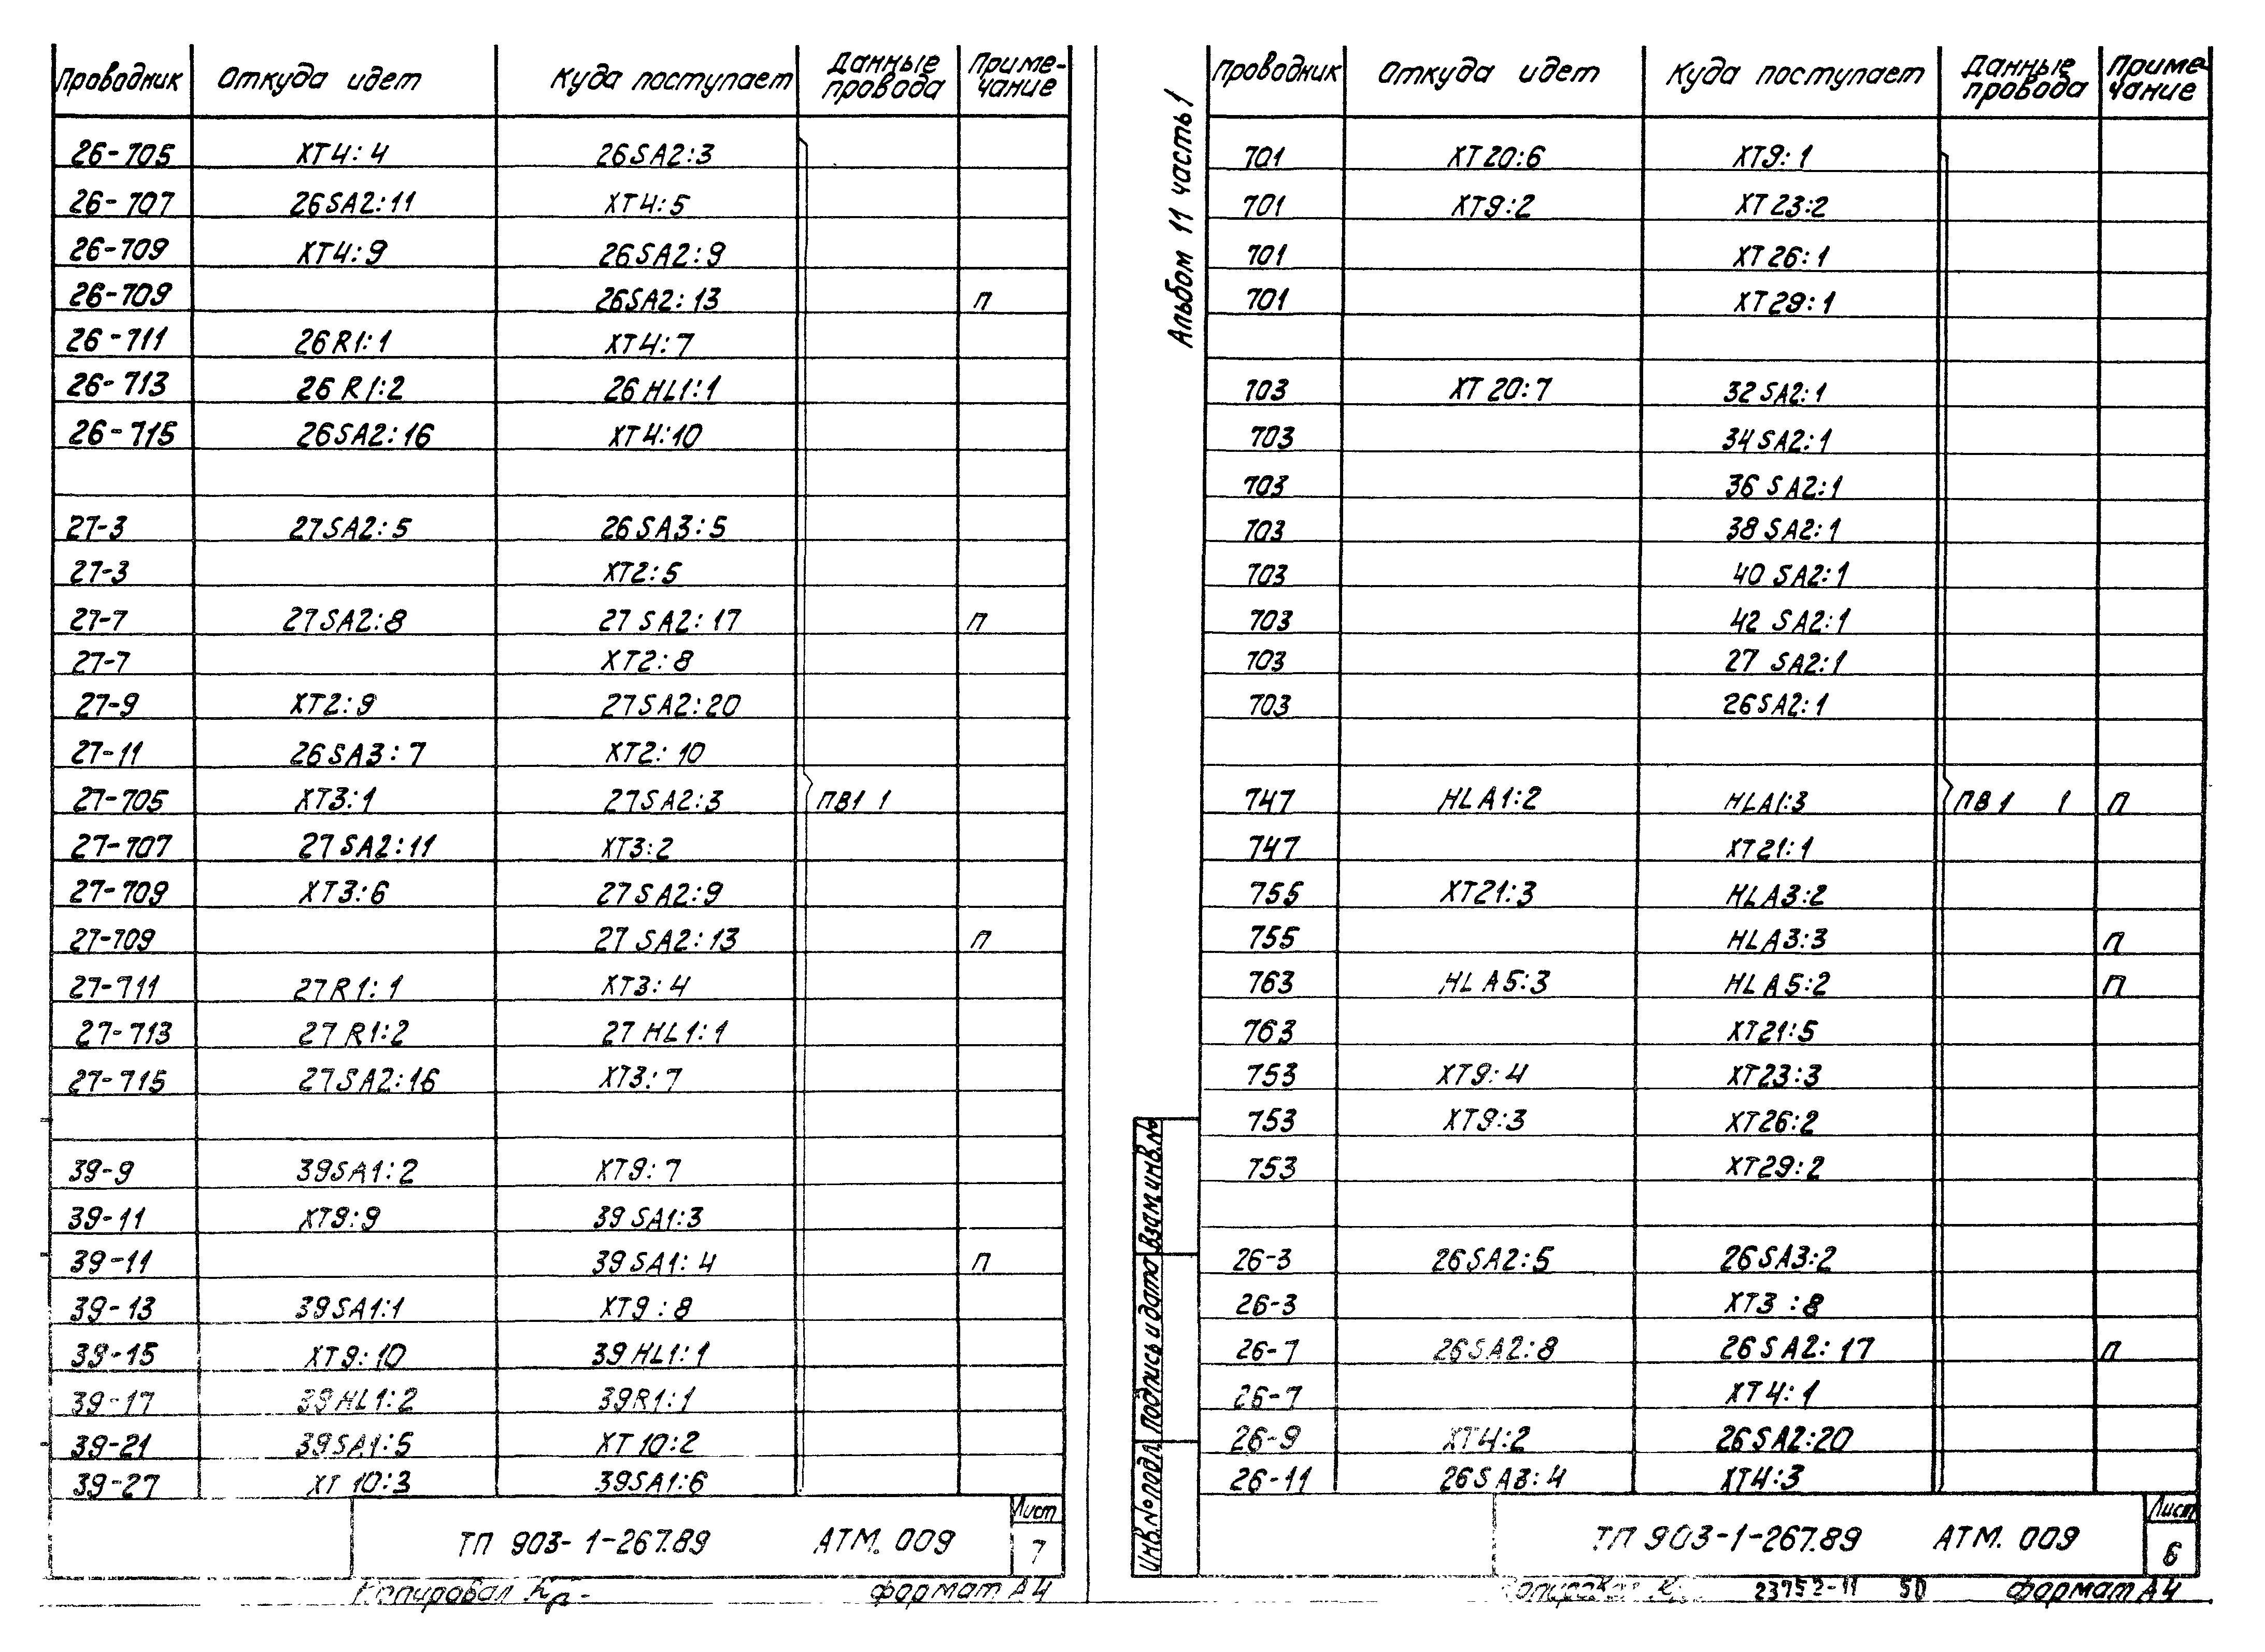 Проводник Откуда идет Куда поступает Данные провода Приме-чание
26-705 XT4:4 26SA2:3
26-707 26SA2:11 XT4:5
26-709 XT4:9 26SA2:9
26-709 26SA2:13 П
26-711 26R1:1 XT4:7
26-713 26R1:2 26HL1:1
26-715 26SA2:16 XT4:10
27-3 27SA2:5 26SA3:5
27-3 XT2:5
27-7 27SA2:8 27SA2:17 П
27-7 XT2:8
27-9 XT2:9 27SA2:20
27-11 26SA3:7 XT2:10
27-705 XT3:1 27SA2:3 ПВ1 1
27-707 27SA2:11 XT3:2
27-709 XT3:6 27SA2:9
27-709 27SA2:13 П
27-711 27R1:1 XT3:4
27-713 27R1:2 27HL1:1
27-715 27SA2:16 XT3:7
39-9 39SA1:2 XT9:7
39-11 XT9:9 39SA1:3
39-11 39SA1:4 П
39-13 39SA1:1 XT9:8
39-15 XT9:10 39HL1:1
39-17 39HL1:2 39R1:1
39-21 39SA1:5 XT10:2
39-27 XT10:3 39SA1:6
ТП 903-1-267.89 АТМ.009 Лист 7
Копировал формат А4
Альбом 11 часть 1
Проводник Откуда идет Куда поступает Данные провода Приме-чание
701 XT20:6 XT9:1
701 XT9:2 XT23:2
701 XT26:1
701 XT29:1
703 XT20:7 32SA2:1
703 34SA2:1
703 36SA2:1
703 38SA2:1
703 40SA2:1
703 42SA2:1
703 27SA2:1
703 26SA2:1
747 HLA1:2 HLA1:3 ПВ1 1 П
747 XT21:1
755 XT21:3 HLA3:2
755 HLA3:3 П
763 HLA5:3 HLA5:2 П
763 XT21:5
753 XT9:4 XT23:3
753 XT9:3 XT26:2
753 XT29:2
26-3 26SA2:5 26SA3:2
26-3 XT3:8
26-7 26SA2:8 26SA2:17 П
26-7 XT4:1
26-9 XT4:2 26SA2:20
26-11 26SA3:4 XT4:3
Инв.№подл. Подпись и дата Взам.инв.№
ТП 903-1-267.89 АТМ.009 Лист 6
23752-11 50 формат А4